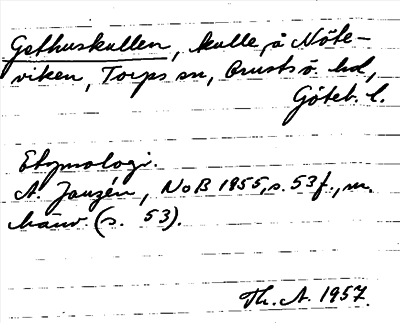 Gethuskullen, kulle, å Nöte-
viken, Torps sn, Orusts ö. hd,
Göteb. l.
Etymologi.
A. Janzén, NoB 1955, s. 53 f., m.
hänv. (s. 53).
Th. A. 1957.